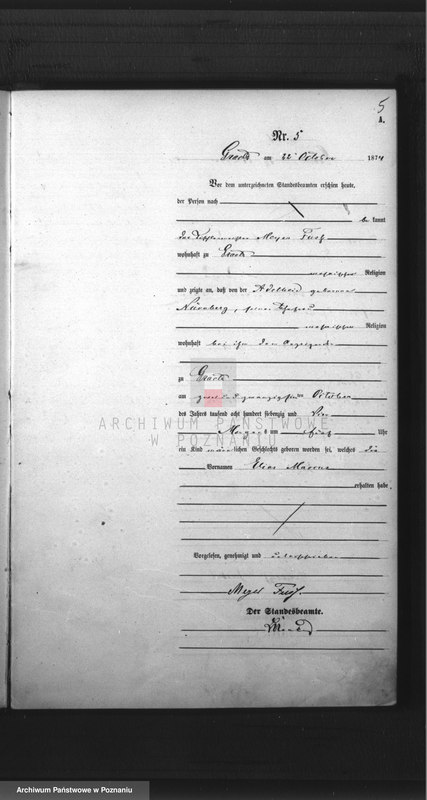 5
A.
Nr. 5
Graetz am 22 October 1874
Vor dem unterzeichneten Standesbeamten erschien heute,
der Person nach
be kannt
der Meyer
wohnhaft zu Graetz
mosaischer Religion
und zeigte an, daß von der Adelheid geborene
Nürnberg, seiner Ehefrau
mosaischer Religion
wohnhaft bei ihm dem Anzeigenden
zu Graetz
am zwei und zwanzigsten October
des Jahres tausend acht hundert siebenzig und vier
Morgens um fünf Uhr
ein Kind männlichen Geschlechts geboren worden sei, welches die
Vornamen Elias Marcus
erhalten habe
Vorgelesen, genehmigt und unterschrieben
Meyer
Der Standesbeamte.
ARCHIWUM PAŃSTWOWE
W POZNANIU
Archiwum Państwowe w Poznaniu